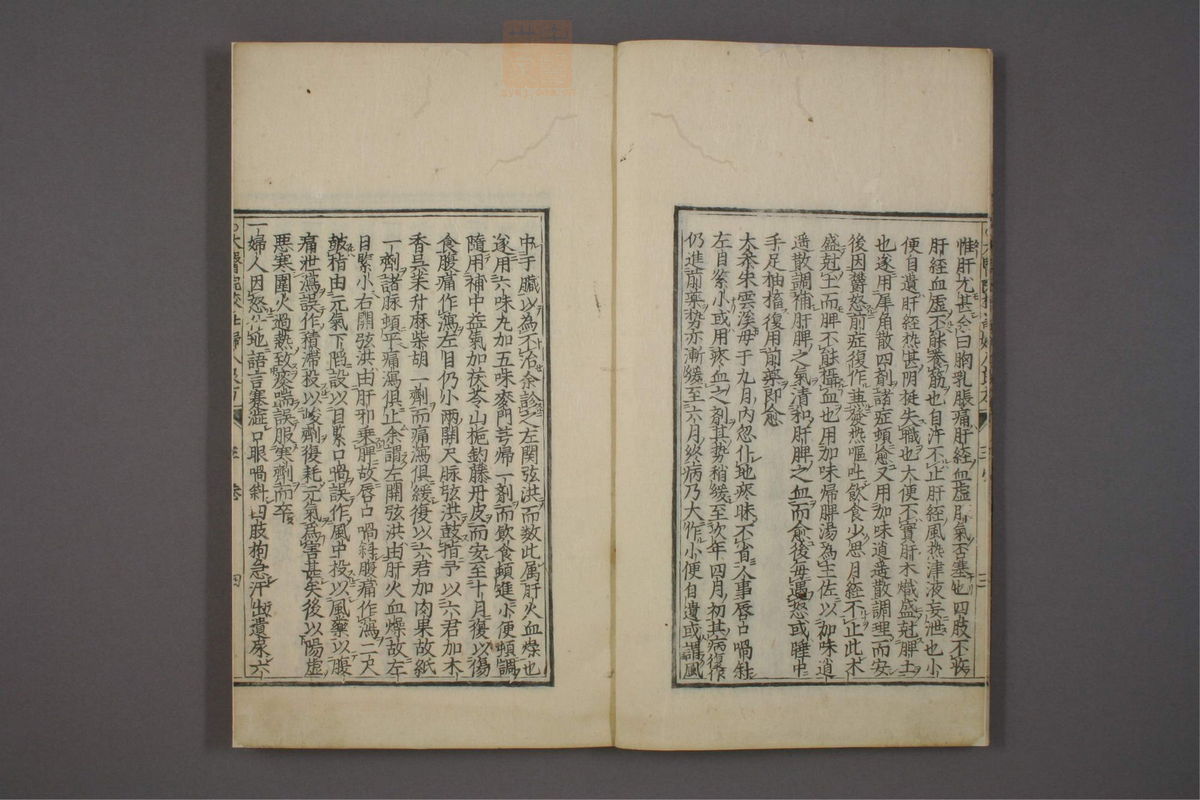 惟肝尤甚余曰胸乳脹痛肝経血虚肝氣否塞也四肢不
肝経血虚不能養筋也自汗不止肝経風熱津液妄泄也小
便自遺肝経熱甚陰挺失職也大便不實肝木熾盛尅脾土
也遂用犀角散四剤諸症頓愈又用加味逍遥散調理而安
後因欝怒前症復作兼發熱嘔吐飲食少思月経不止此木
盛尅土而脾不能攝血也用加味帰脾湯為主佐以加味逍
遥散調補肝脾之氣清和肝脾之血而愈後毎遇怒或睡中
手足抽搐復用前藥即愈
太奉朱雲溪母于九月内忽仆地痰昧不省人事唇口喎斜
左目緊小或用痰血之剤其勢稍緩至次年四月初其病復作
仍進前藥勢亦漸緩至六月終病乃大作小便自遺或謂風
中于臓以為不治余診之左関弦洪而数此属肝火血燥也
遂用六味丸加五味麥門芎帰一剤而飲食頓進小便頓調
隨用補中益氣加茯苓山梔釣藤丹皮而安至十月復以傷
食腹痛作瀉左目仍小兩関尺脉弦洪鼓指予以六君加木
香呉茱升麻柴胡一劑而痛瀉倶緩復以六君加肉果故紙
一劑諸脉頓平痛瀉倶止余謂左関弦洪由肝火血燥故左
目緊小右関弦洪由肝邪乗脾故唇口喎斜腹痛作瀉二尺
皷指由元氣下陥設以目緊口喎誤作風中投以風藥以腹
痛泄瀉誤作積滞投以峻劑復耗元氣為害甚矣後以陽虚
悪寒圍火過熱致痰喘誤服寒劑而卒
一婦人因怒仆地語言蹇澁口眼喎斜四肢拘急汗出遺尿六